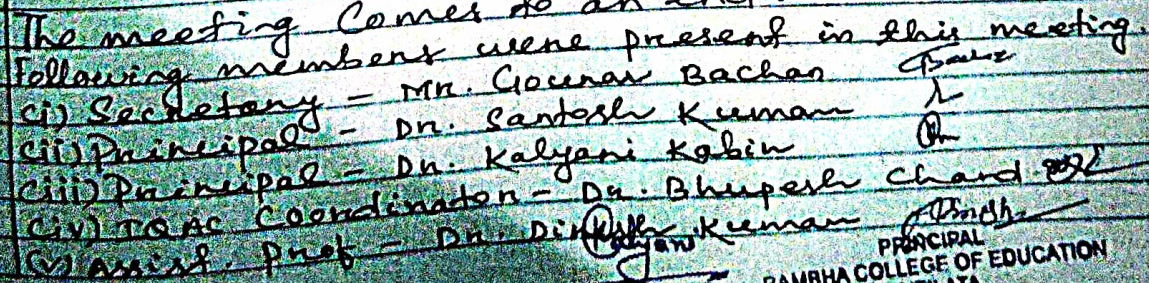 The meeting Comes to an end.
Following members were present in this meeting.
(i) Secretary - Mr. Gourav Bachan
(ii) Principal - Dr. Santosh Kumar
(iii) Principal - Dr. Kalyani Kabir
(iv) IQAC Coordinator - Dr. Bhupesh Chand
(v) Assist. Prof - Dr. Dinesh Kumar
Kalyani
PRINCIPAL
RAMBHA COLLEGE OF EDUCATION